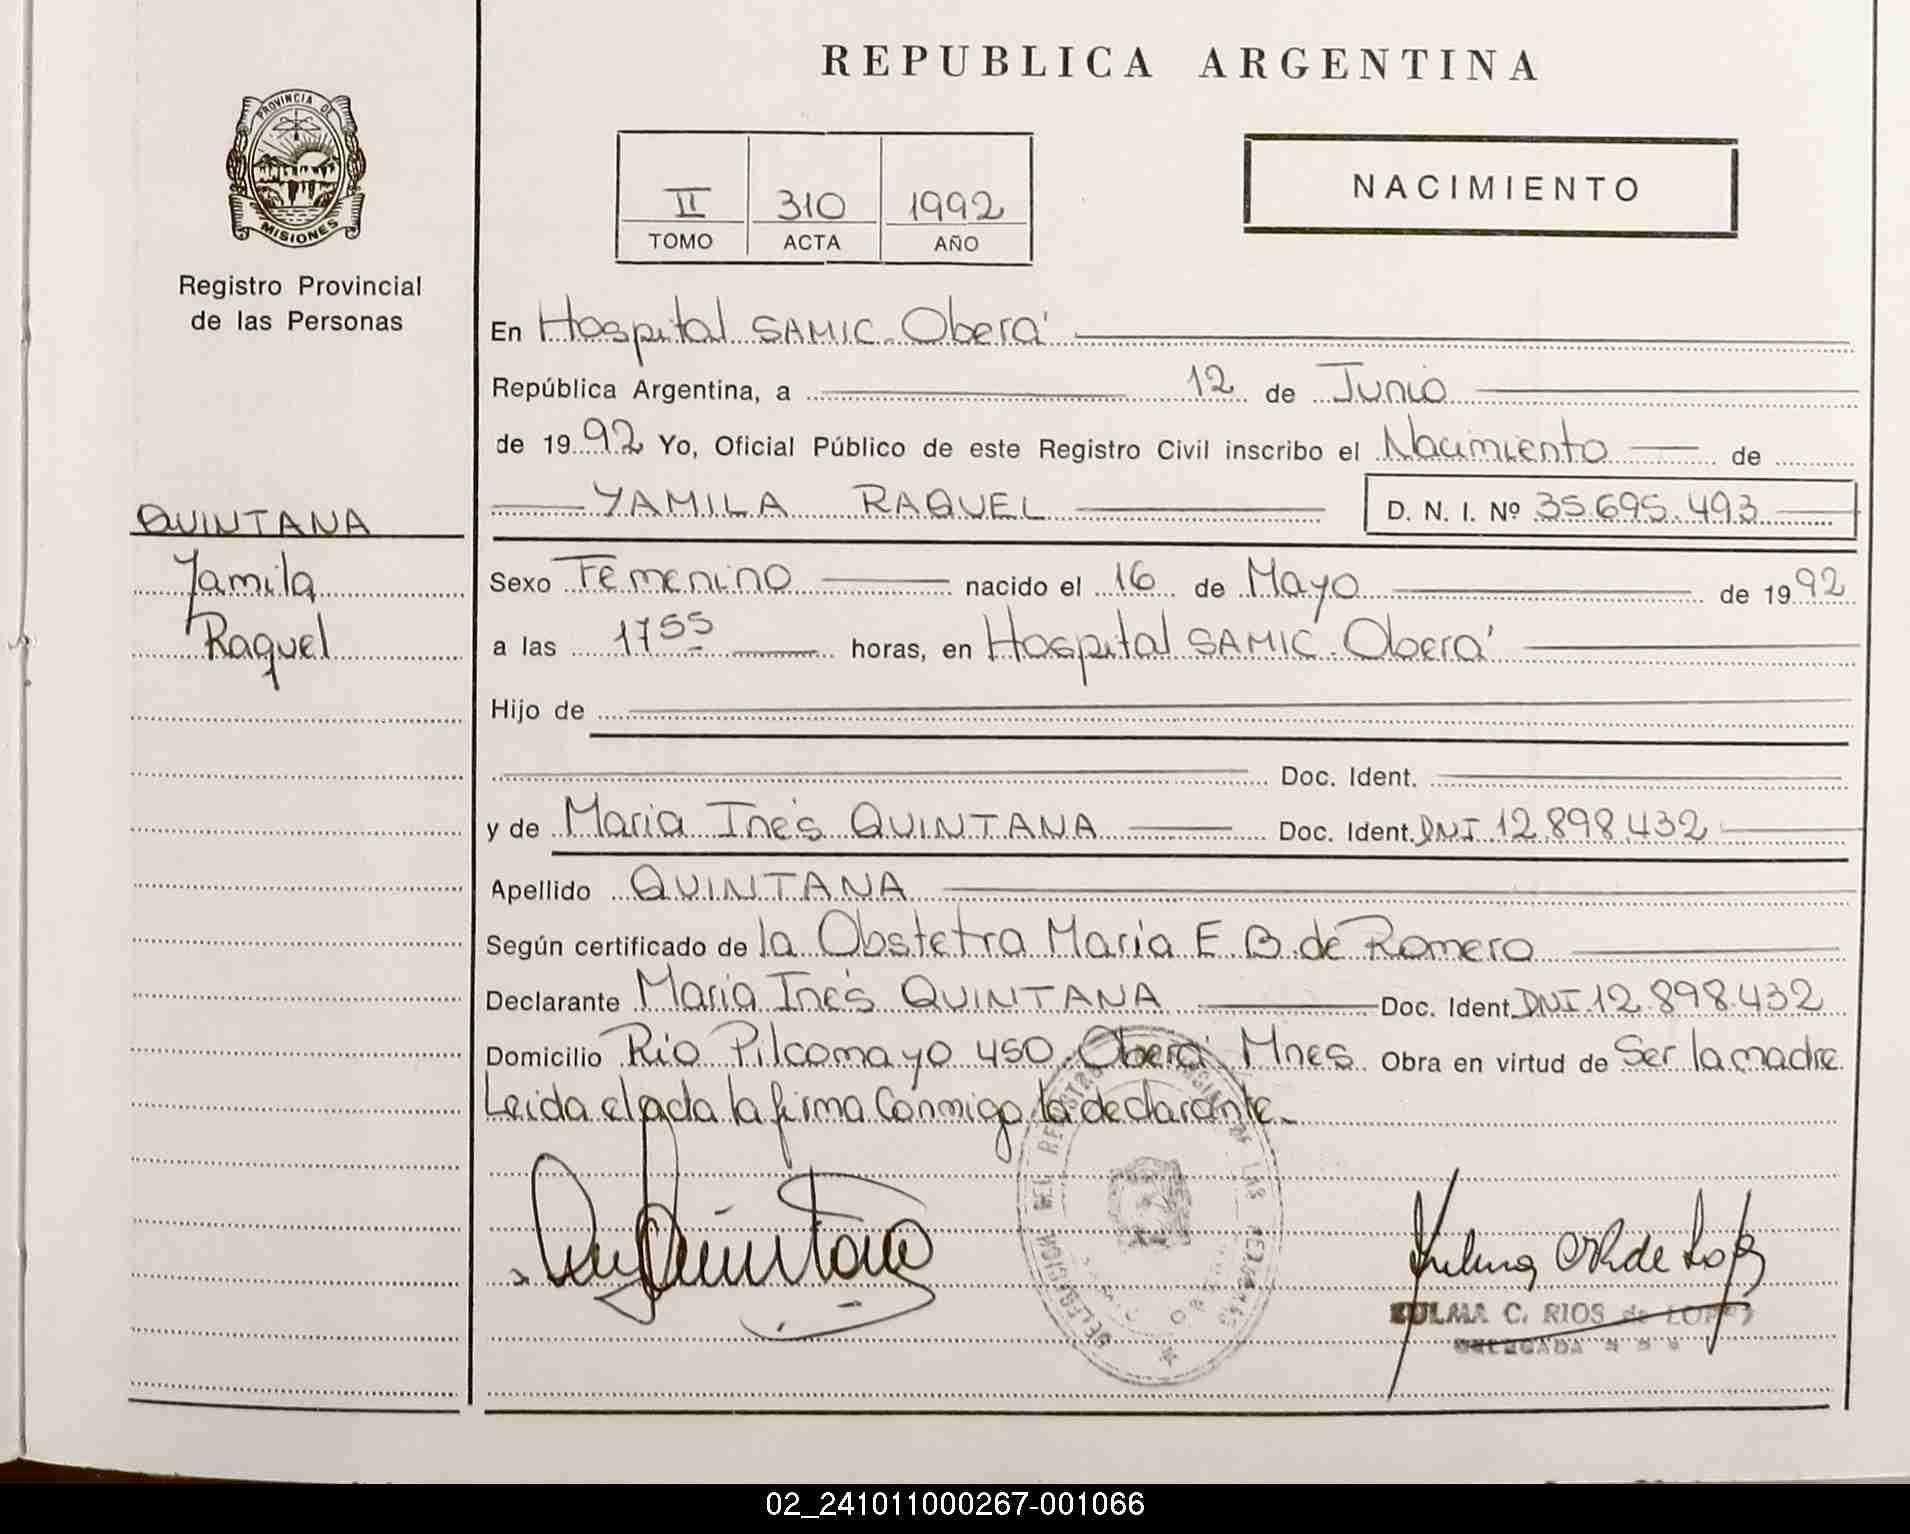 REPUBLICA ARGENTINA
PROVINCIA DE
MISIONES
Registro Provincial
de las Personas
II 310 1992
TOMO ACTA AÑO
NACIMIENTO
En Hospital SAMIC. Oberá
República Argentina, a 12 de Junio
de 1992 Yo, Oficial Público de este Registro Civil inscribo el Nacimiento de
YAMILA RAQUEL D. N. I. Nº 35.695.493
QUINTANA
Yamila
Raquel
Sexo Femenino nacido el 16 de Mayo de 1992
a las 17 55 horas, en Hospital SAMIC. Oberá
Hijo de
Doc. Ident.
y de Maria Inés QUINTANA Doc. Ident. DNI 12.898.432
Apellido QUINTANA
Según certificado de la Obstetra Maria E. B. de Romero
Declarante Maria Inés QUINTANA Doc. Ident. DNI 12.898.432
Domicilio Rio Pilcomayo 450. Oberá Mnes. Obra en virtud de Ser la madre
Leida el acta la firma Conmigo la declarante.-
DELEGACION DEL REGISTRO LAS
ZULMA C. RIOS de LOPEZ
DELEGADA
02_241011000267-001066